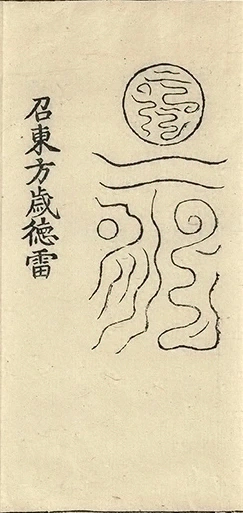 召東方歲德雷